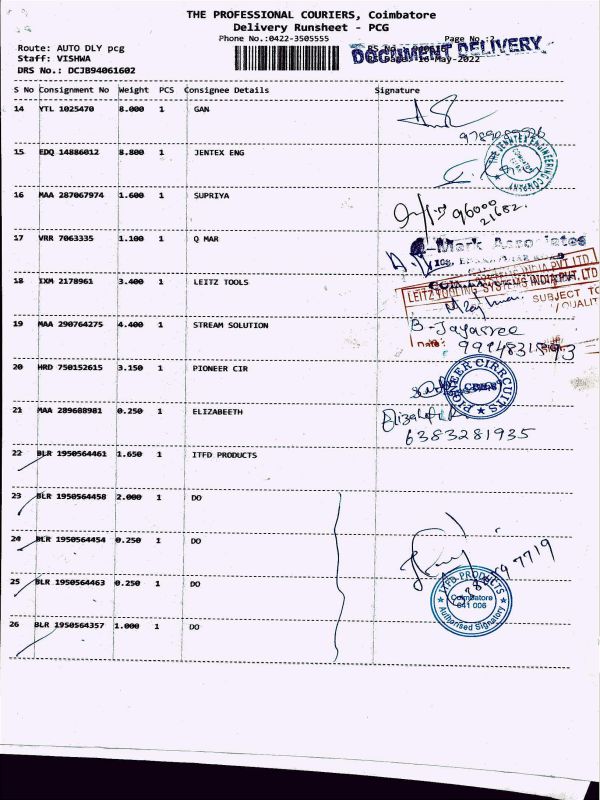 THE PROFESSIONAL COURIERS, Coimbatore
Delivery Runsheet - PCG
Phone No.:0422-3505555
Page No.:2
Route: AUTO DLY pcg
DOCUMENT DELIVERY
Staff: VISHWA
16-May-2022
DRS No.: DCJB94061602
S No Consignment No Weight PCS Consignee Details Signature
14 YTL 1025470 8.000 1 GAN
15 EDQ 14886012 8.800 1 JENTEX ENG
THE JENTEX ENGINEERING COMPANY
16 MAA 287067974 1.600 1 SUPRIYA
96000
21682.
17 VRR 7063335 1.100 1 Q MAR
Q-Mark Associates
18 IXM 2178961 3.400 1 LEITZ TOOLS
LEITZ TOOLING SYSTEMS INDIA PVT. LTD
SUBJECT TO
19 MAA 290764275 4.400 1 STREAM SOLUTION
B-Jayasree
9994831893
20 HRD 750152615 3.150 1 PIONEER CIR
PIONEER CIRRCUITS
21 MAA 289688981 0.250 1 ELIZABEETH
6383281935
22 BLR 1950564461 1.650 1 ITFD PRODUCTS
23 BLR 1950564458 2.000 1 DO
24 BLR 1950564454 0.250 1 DO
25 BLR 1950564463 0.250 1 DO
ITFD PRODUCTS
Coimbatore
641 006
Authorised Signatory
26 BLR 1950564357 1.000 1 DO